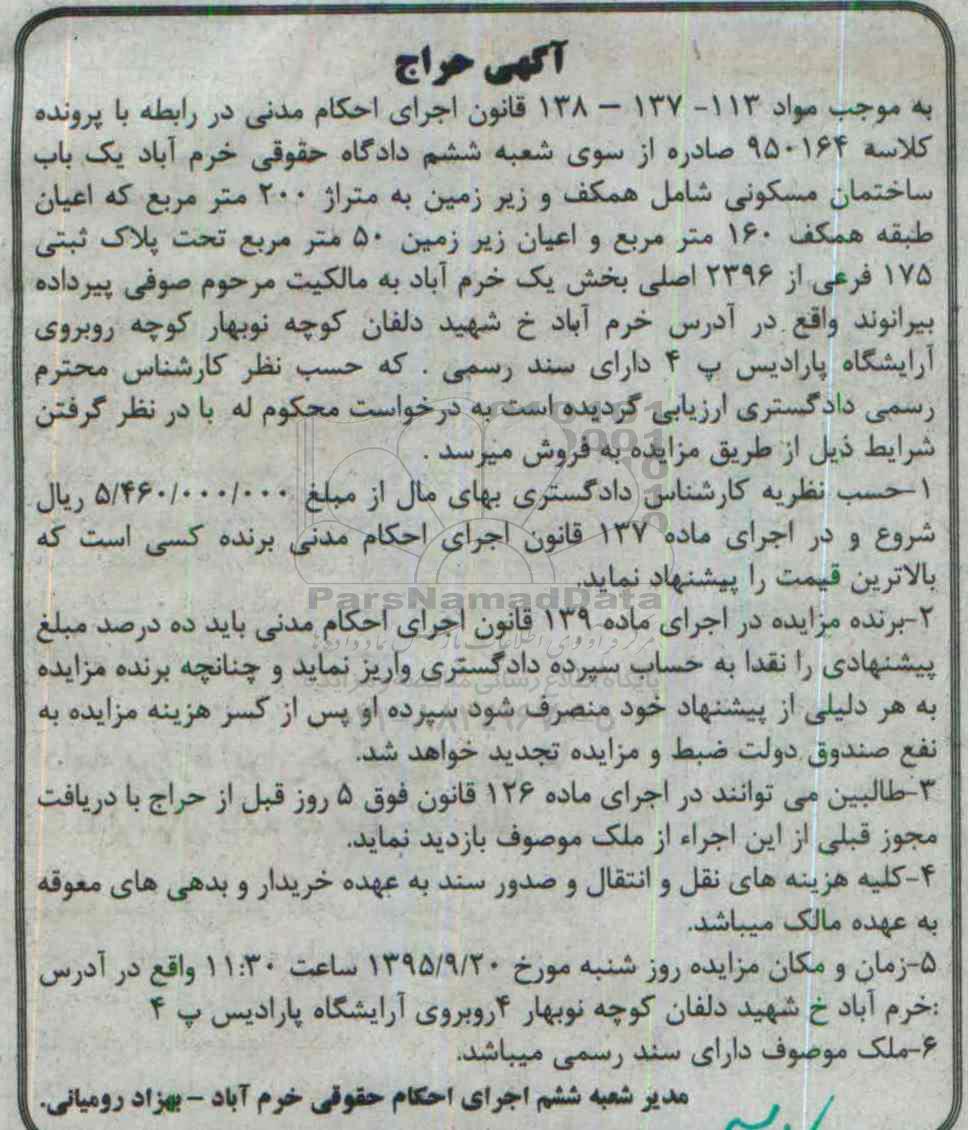 آگهی حراج
به موجب مواد ۱۱۳- ۱۳۷ – ۱۳۸ قانون اجرای احکام مدنی در رابطه با پرونده
کلاسه ۹۵۰۱۶۴ صادره از سوی شعبه ششم دادگاه حقوقی خرم آباد یک باب
ساختمان مسکونی شامل همکف و زیر زمین به متراژ ۲۰۰ متر مربع که اعیان
طبقه همکف ۱۶۰ متر مربع و اعیان زیر زمین ۵۰ متر مربع تحت پلاک ثبتی
۱۷۵ فرعی از ۲۳۹۶ اصلی بخش یک خرم آباد به مالکیت مرحوم صوفی پیرداده
بیرانوند واقع در آدرس خرم آباد خ شهید دلفان کوچه نوبهار کوچه روبروی
آرایشگاه پارادیس پ ۴ دارای سند رسمی . که حسب نظر کارشناس محترم
رسمی دادگستری ارزیابی گردیده است به درخواست محکوم له با در نظر گرفتن
شرایط ذیل از طریق مزایده به فروش میرسد .
۱-حسب نظریه کارشناس دادگستری بهای مال از مبلغ ۵/۴۶۰/۰۰۰/۰۰۰ ریال
شروع و در اجرای ماده ۱۳۷ قانون اجرای احکام مدنی برنده کسی است که
بالاترین قیمت را پیشنهاد نماید.
ParsNamadData
۲-برنده مزایده در اجرای ماده ۱۳۹ قانون اجرای احکام مدنی باید ده درصد مبلغ
پیشنهادی را نقدا به حساب سپرده دادگستری واریز نماید و چنانچه برنده مزایده
به هر دلیلی از پیشنهاد خود منصرف شود سپرده او پس از کسر هزینه مزایده به
نفع صندوق دولت ضبط و مزایده تجدید خواهد شد.
۳-طالبین می توانند در اجرای ماده ۱۲۶ قانون فوق ۵ روز قبل از حراج با دریافت
مجوز قبلی از این اجراء از ملک موصوف بازدید نماید.
۴-کلیه هزینه های نقل و انتقال و صدور سند به عهده خریدار و بدهی های معوقه
به عهده مالک میباشد.
۵-زمان و مکان مزایده روز شنبه مورخ ۱۳۹۵/۹/۲۰ ساعت ۱۱:۳۰ واقع در آدرس
:خرم آباد خ شهید دلفان کوچه نوبهار ۴روبروی آرایشگاه پارادیس پ ۴
۶-ملک موصوف دارای سند رسمی میباشد.
مدیر شعبه ششم اجرای احکام حقوقی خرم آباد – بهزاد رومیانی.